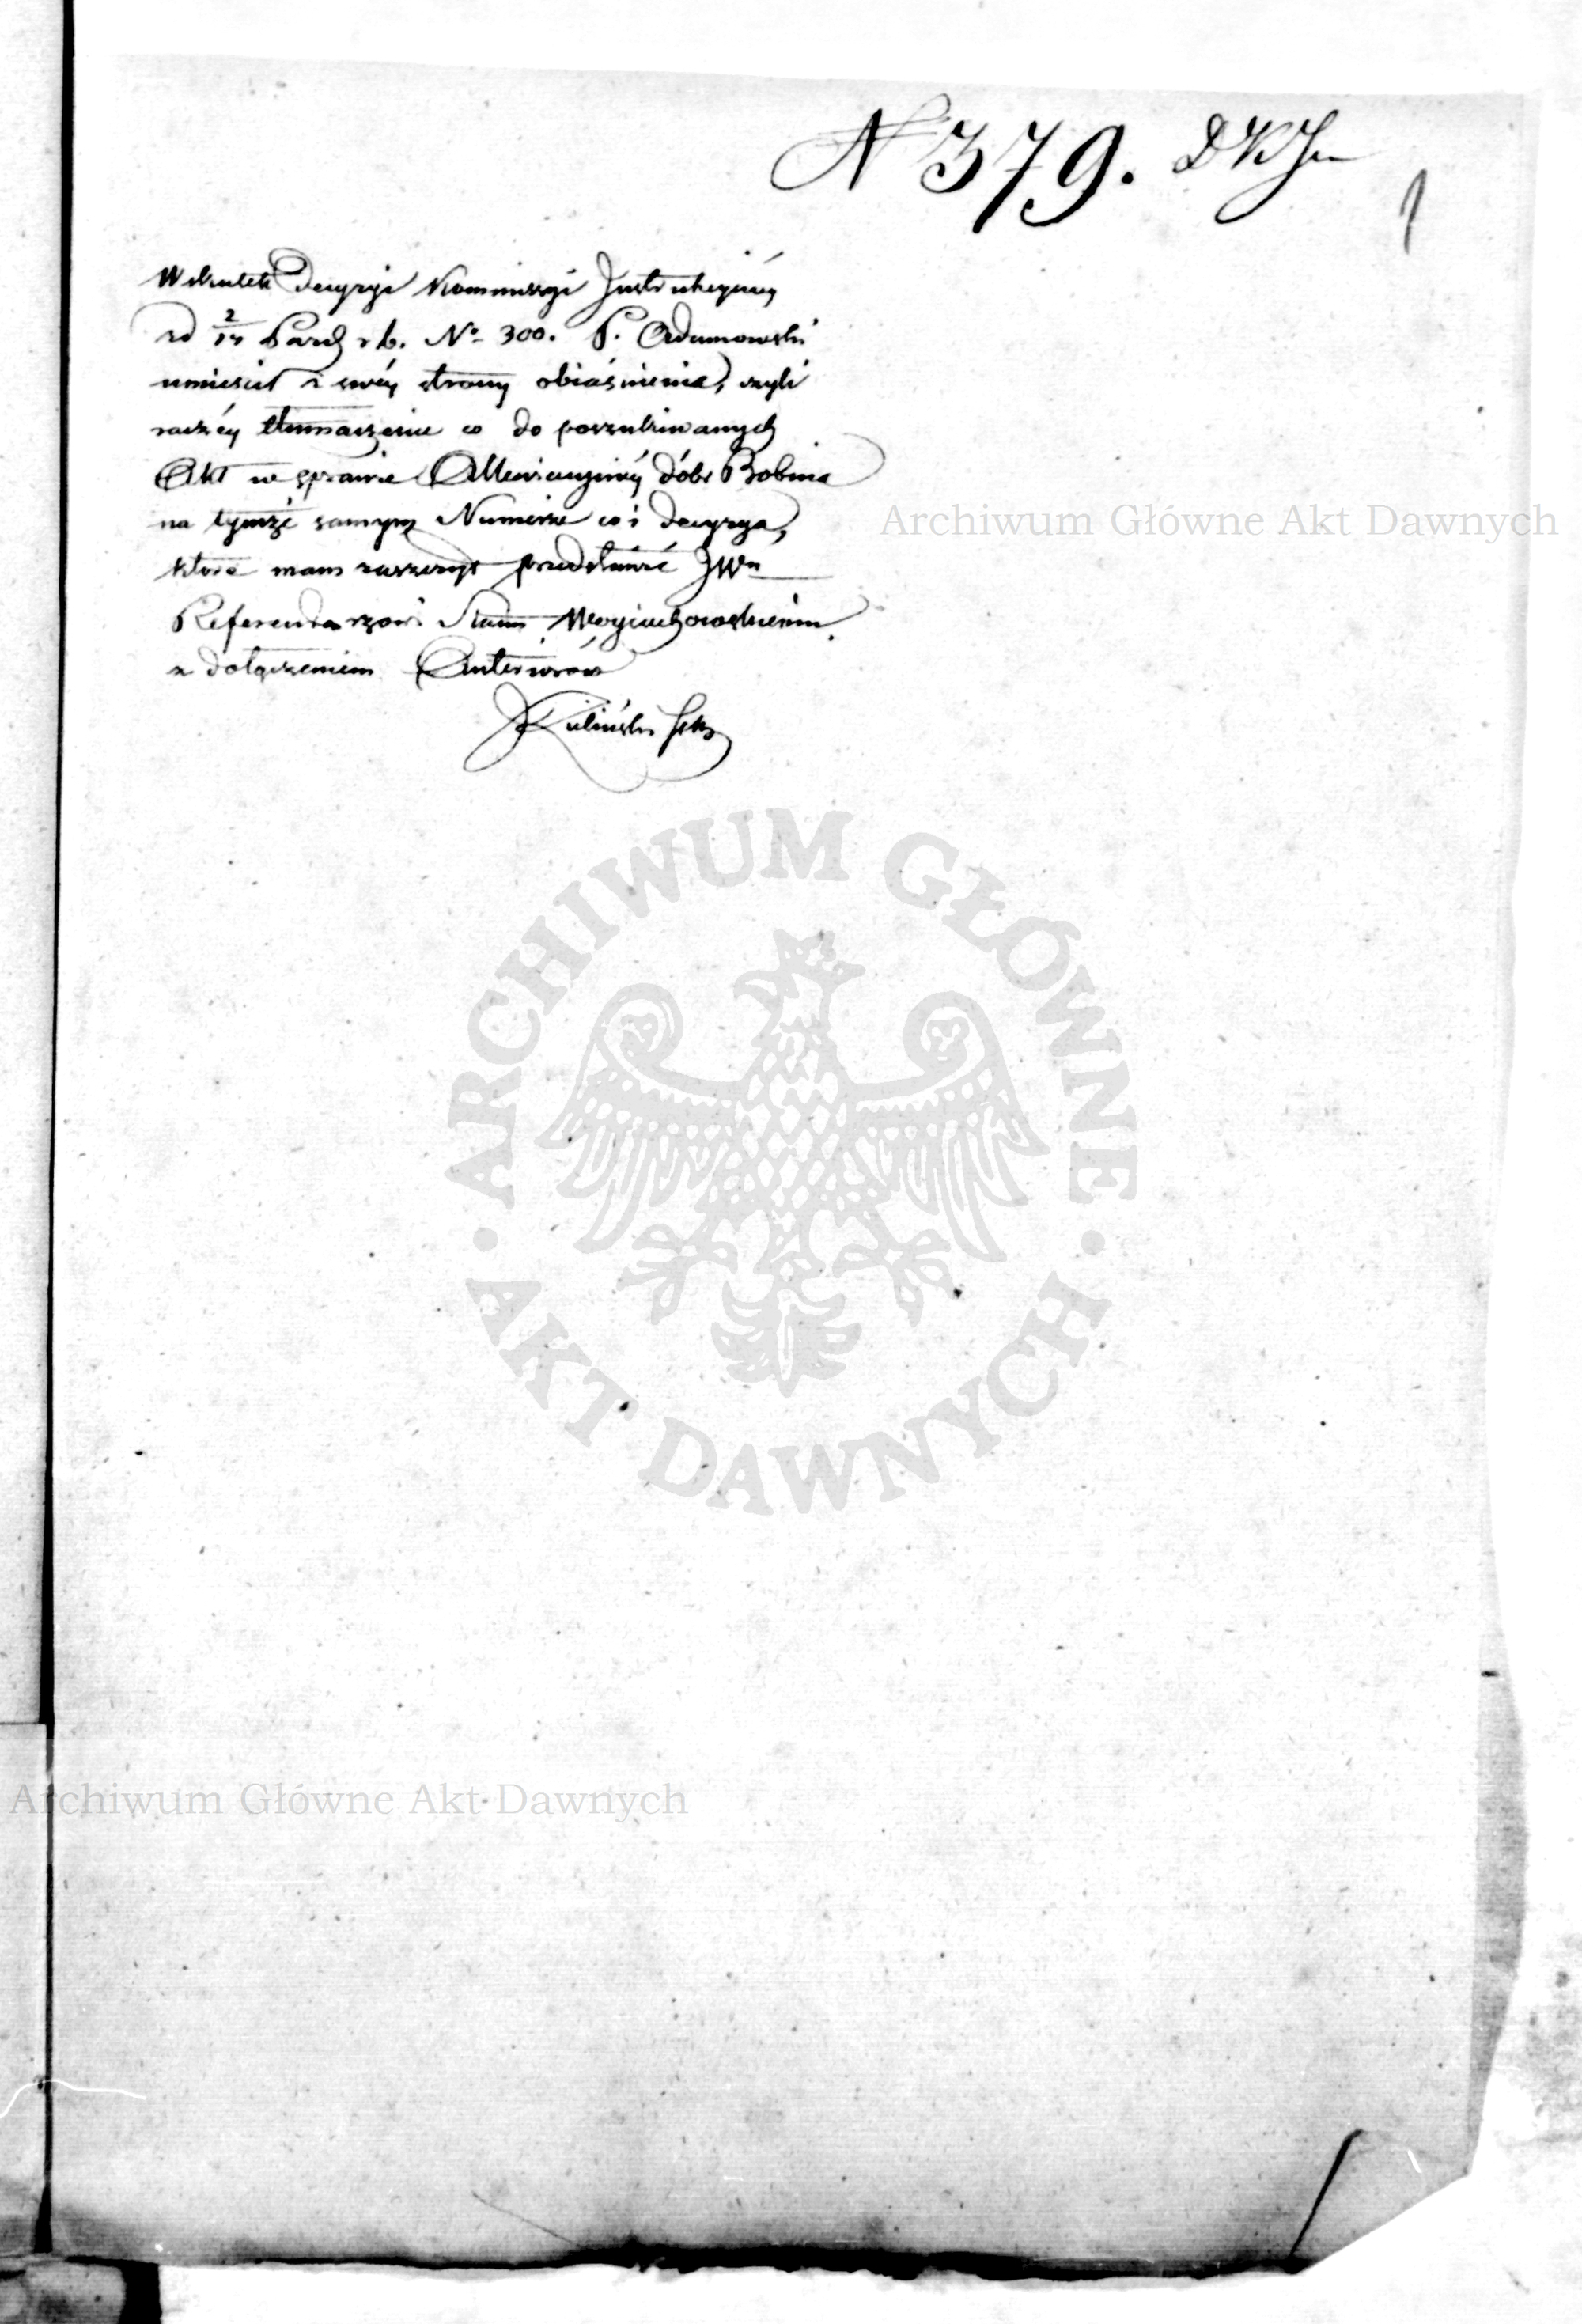 N 379. DKJ
1
W skutek Decyzyi Kommissyi Instrukcyinéy
od 2/14 Paźd. r. b. No 300. P. Adamowski
umieścił z swéy strony obiaśnienia, czyli
raczéy tłumaczenie co do poszukiwanych
Akt w sprawie dóbr Bobina
na tymże samym Numerze co i decyzya,
które mam zaszczyt przedstawić JWu
Referendarzowi Stanu Woyciechowskiemu
z dołączeniem Anteriorów
Kuliński Sek
Archiwum Główne Akt Dawnych
ARCHIWUM GŁÓWNE
AKT DAWNYCH
Archiwum Główne Akt Dawnych